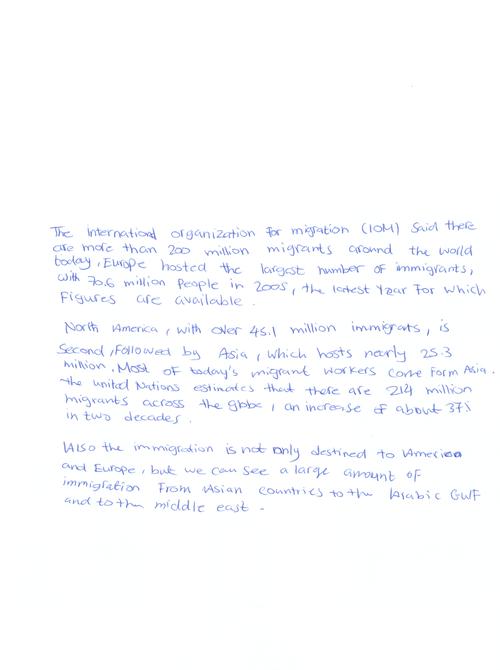 The International organization for migration (IOM) said there
are more than 200 million migrants around the world
today, Europe hosted the largest number of immigrants,
with 70.6 million People in 2005, the latest year For which
Figures are available .
North America, with over 45.1 million immigrats, is
Second, Followed by Asia, which hosts nearly 25.3
million, Most of today's migrant workers come Form Asia.
the united Nations estimates that there are 214 million
migrants across the globe, an increase of about 37%
in two decades .
Also the immigration is not only destined to America
and Europe, but we can see a large amount of
immigration From Asian countries to the Arabic GulF
and to the middle east .